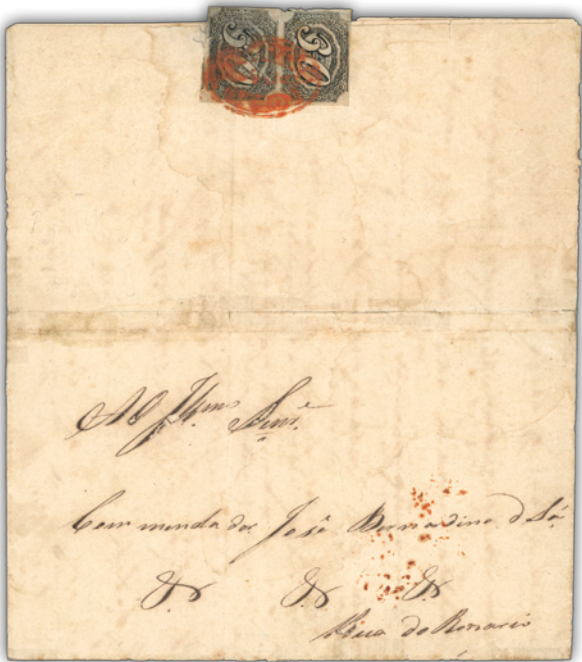 60 60
Ao Illmo Senr.
Commendador José Bernardino d Sá
& & &
Rua do Rosario